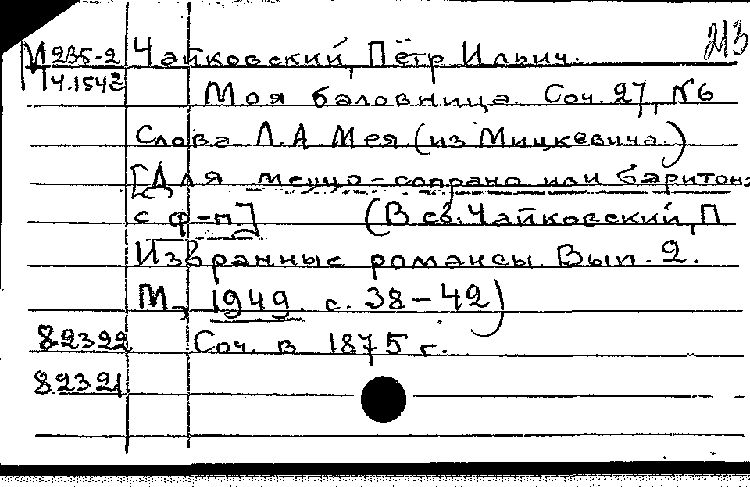 213
М 235-2 Чайковский, Пётр Ильич.
Ч.1542
Моя баловница. Соч. 27, №6
Слова Л.А Мея (из Мицкевича.)
[Для меццо-сопрано или баритона
с ф-п.] (В сб. Чайковский, П
Избранные романсы. Вып. 2.
М, 1949 с. 38-42)
82322 Соч. в 1875 г.
82321